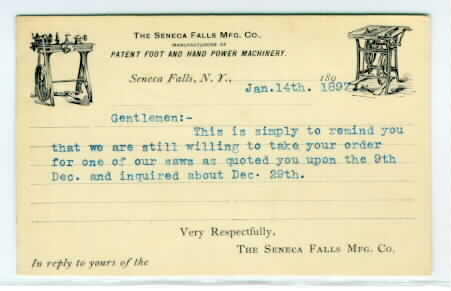 THE SENECA FALLS MFG. CO.,
MANUFACTURERS OF
PATENT FOOT AND HAND POWER MACHINERY.
Seneca Falls, N. Y., 189
Jan.14th. 1897.
Gentlemen:-
This is simply to remind you
that we are still willing to take your order
for one of our saws as quoted you upon the 9th
Dec. and inquired about Dec. 29th.
Very Respectfully,
THE SENECA FALLS MFG. CO.
In reply to yours of the